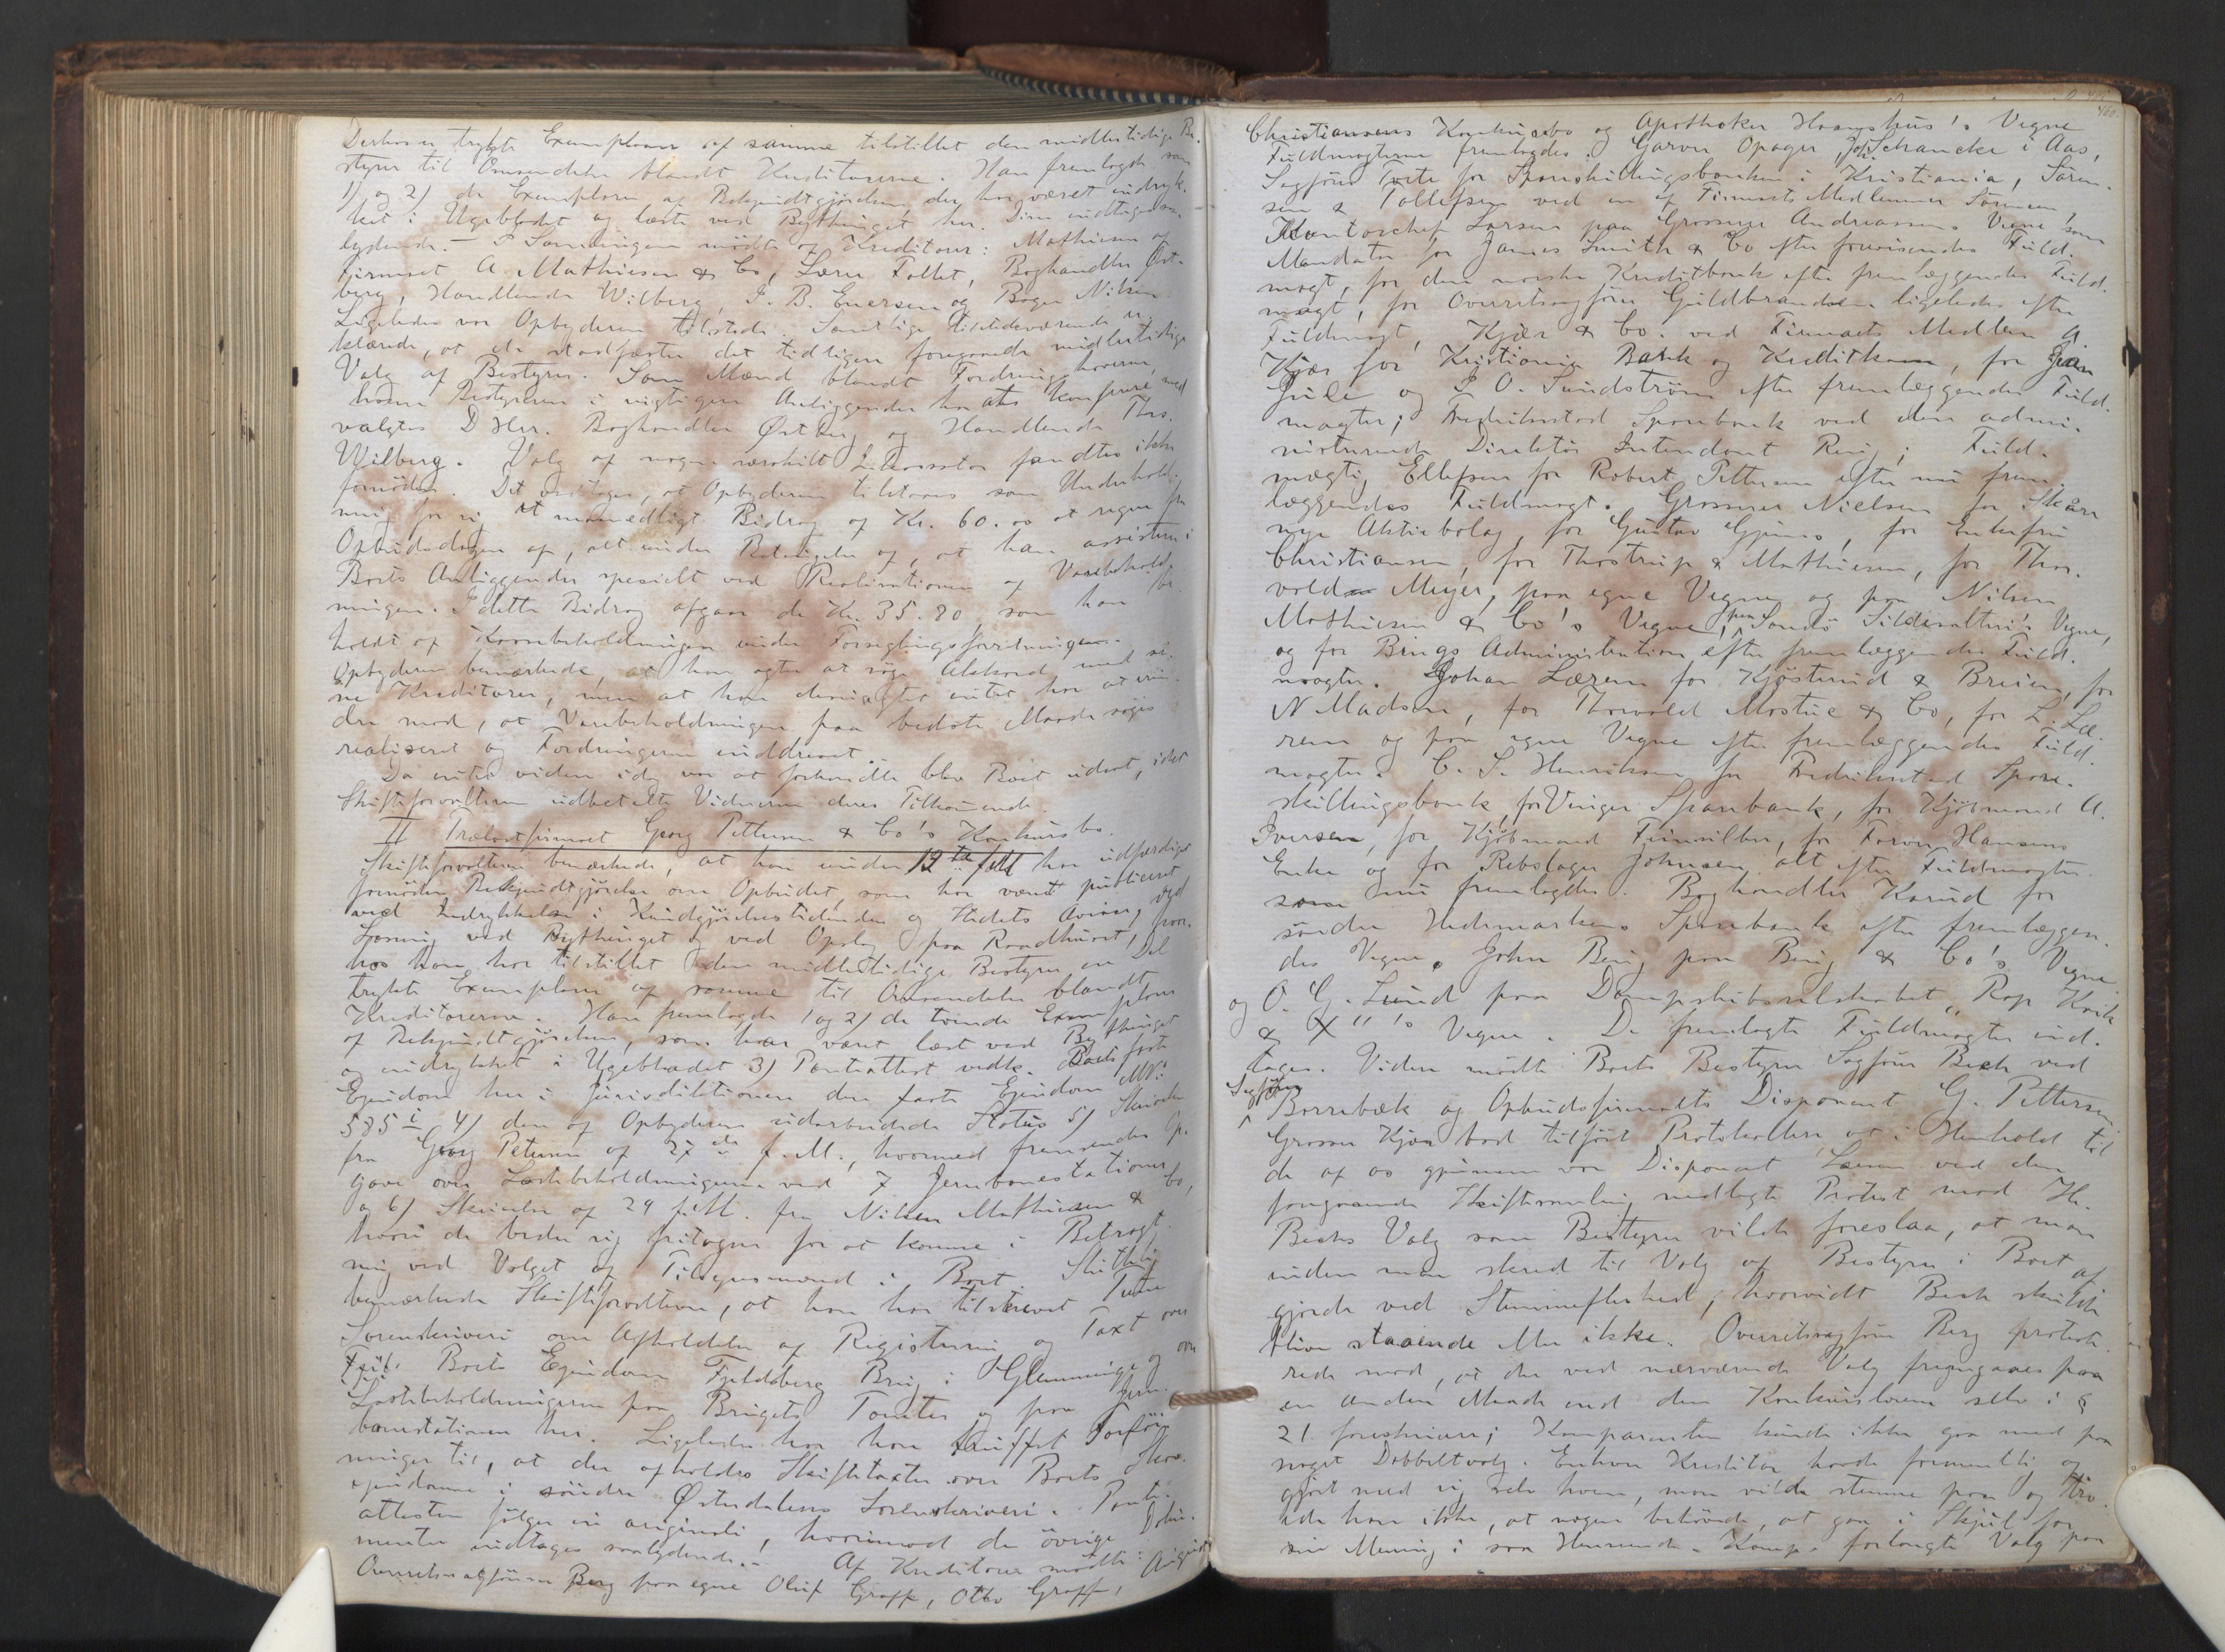 Derhos er trykte Exemplarer af samme tilstillet den midlertidige Be-
styrer til Omsendelse blandt Kreditorerne. Han fremlagde som
1) og 2) de Exemplarer af Bekjendtgjørelsen der har været indryk-
ket i Ugebladet og læste ved Bythinget her. Disse indtages saa-
lydende. - I Samlingen mødte af Kreditorer: Mathiesen af
Firmaet A. Mathiesen & Co, Lærer Follet, Boghandler Øst-
berg, Handlende Wilberg, I. B. Enersen og Bager Nilsen
Ligeledes var Opbyderen tilstede. Samtlige tilstedeværende er-
klærede, at de stadfæster det tidligere foregaaede midlertidige
Valg af Bestyrer. Som Mænd blandt Fordringshaverne,
hvem Bestyreren i vigtigere Anliggender har at konferere med
valgtes D'Hrr. Boghandler Østberg og Handlende Ths.
Wilberg. Valg af nogen særskilt Inkassator fandtes ikke
fornøden. Det vedtoges, at Opbyderen tilstaaes som Underhold-
ning for sig et maanedligt Bidrag af Kr. 60.00 at regne fra
Opbudsdagen af, alt under Betingelse af, at han assisterer i
Boets Anliggender specielt ved Realisationen af Varebehold-
ningen. I dette Bidrag afgaar de Kr. 35.80, som han for-
holdt af Kassebeholdningen under Forseglingsforretningen.
Opbyderen bemærkede, at han agter at søge Akkord med si-
ne Kreditorer, men at han desuagtet intet har at erin-
dre mod, at Varebeholdningen paa bedste Maade søges
realiseret og Fordringerne inddrevet.
Da intet videre idag var at forhandle blev Boet udsat, idet
Skifteforvalteren udbetalte Vidnerne deres Tilkommende.
II Trælastfirmaet Georg Pettersen & Co's Konkursbo.
Skifteforvalteren bemærkede, at han under 12te f.M. har udfærdiget
fornøden Bekjendtgjørelse om Opbudet, som har været publiceret
ved Indrykkelse i Kundgjørelsestidende og Stedets Aviser, ved
Læsning ved Bythinget og ved Opslag paa Raadhuset, hvor-
hos han har tilstillet den midlertidige Bestyrer en Del
trykte Exemplarer af samme til Omsendelse blandt
Kreditorerne. Han fremlagde 1 og 2) de tvende Exemplarer
af Bekjendtgjørelsen, som har været læst ved Bythinget
og indrykket i Ugebladet 3) Panteattest vedk. Boets faste
Ejendom her i Jurisdiktionen den faste Ejendom MN:
585 i 4) den af Opbyderen udarbeidede Status 5) Skrivelse
fra Georg Petersen af 27de f.M., hvormed fremsendes Op-
gave over Lastebeholdningerne ved 7 Jernbanestationer
og 6) Skrivelse af 29 f.M. fra Nilsen Mathiesen & Co,
hvori de beder sig fritagne for at komme i Betragt-
ning ved Valget af Tilsynsmænd i Boet. Sluttelig
bemærkede Skifteforvalteren, at han har tilskrevet Tune
Sorenskriveri om Afholdelse af Registrering og Taxt over
Boets Ejendom Fjeldberg Brug i Glemminge og over
Lastebeholdningerne paa Brugets Tomter og paa Jern-
banestationen her. Ligeledes har han truffet Forføi-
ninger til, at der afholdes Skiftetaxter over Boets Skov-
ejendomme i søndre Østerdalens Sorenskriveri. Pante-
attesten følger in originali, hvorimod de øvrige Doku-
menter indtages saalydende. - Af Kreditorer mødte: August
Overretssagfører Berg paa egne Oluf Graff, Otto Graff,
Christiansens Konkursbo og Apotheker Haanshus's Vegne
Fuldmagterne fremlagdes. Garver Opager, Joh. Schancke i Aas,
Sagfører Tveté for Spareskillingsbanken i Kristiania, Søren-
sen & Tollefsen ved en af Firmaets Medlemmer Sørensen,
Kontorchef Larsen paa Grosserer Andreassens Vegne som
Mandatar for James Smith & Co efter forevisendes Fuld-
magt, for den norske Kreditbank efter fremlæggendes Fuld-
magt, for Overretssagfører Guldbrandsen ligeledes efter
Fuldmagt, Kjær & Co. ved Firmaets Medlem A.
Kjær for Kristiania Bank og Kreditkasse, for
Juel og I. O. Sundstrøm efter fremlæggendes Fuld-
magter; Fredrikstad Sparebank ved den admi-
nistrerende Direktør Intendant Ring; Fuld-
mægtig Ellefsen for Robert Pettersen efter nu frem-
læggendes Fuldmagt. Grosserer Nielsen for Skåre
nye Aktiebolag, for Gustav Gjems, for Enkefru
Christiansen, for Thostrup & Mathiesen, for Thor-
vald Meyer, paa egne Vegne og paa Nilsen
Mathiesen & Co's Vegne, paa Sandø Sildesalteri's Vegne,
og for Brugs Administration efter fremlæggendes Fuld-
magter. Johan Læren for Kjøsterud & Breien, for
N Madsen, for Thorvald Mostue & Co, for L. Læ-
rem og paa egne Vegne efter fremlæggendes Fuld-
magter. C. S. Henriksen for Fredrikstad Spare-
skillingsbank, for Vinger Sparebank, for Kjøbmand A.
Iversen, for Kjøbmand Finnsilber, for Farver Hansens
Enke og for Rebslager Johnsen alt efter Fuldmagter
som nu fremlagdes. Boghandler Karud for
søndre Hedemarkens Sparebank efter fremlæggen-
des Vegne. John Berg paa Berg & Co's Vegne
og O. G. Lund paa Dampskibsselskabet "Rap Kvik
& X"'s Vegne. De fremlagte Fuldmagter ind-
tages. Videre mødte Boets Bestyrer Sagfører Bech ved
Sagfører Borrebæk og Opbudsfirmaets Disponent G. Pettersen
Grosserer Kjær bad tilført Protokollen, at i Henhold til
de af os gjennem vor Disponent Larsen ved den
foregaaende Skiftesamling nedlagte Protest mod Hr.
Bechs Valg som Bestyrer vilde foreslaa, at man
inden man skred til Valg af Bestyrer i Boet af-
gjorde ved Stemmeflerhed, hvorvidt Bech skulde
blive staaende eller ikke. Overretssagfører Berg protest-
rede mod, at der ved nærværende Valg fremgaaes paa
en anden Maade end den Konkursloven selv i §
21 foreskriver; Komparenten kunde ikke gaa med paa
noget Dobbeltvalg. Enhver Kreditor havde formentlig op-
gjort med sig selv hvem, man vilde stemme paa og tro-
ede han ikke, at nogen behøvede, at gaa i Skjul for
sin Mening i saa Henseende. Komp. forlangte Valg paa